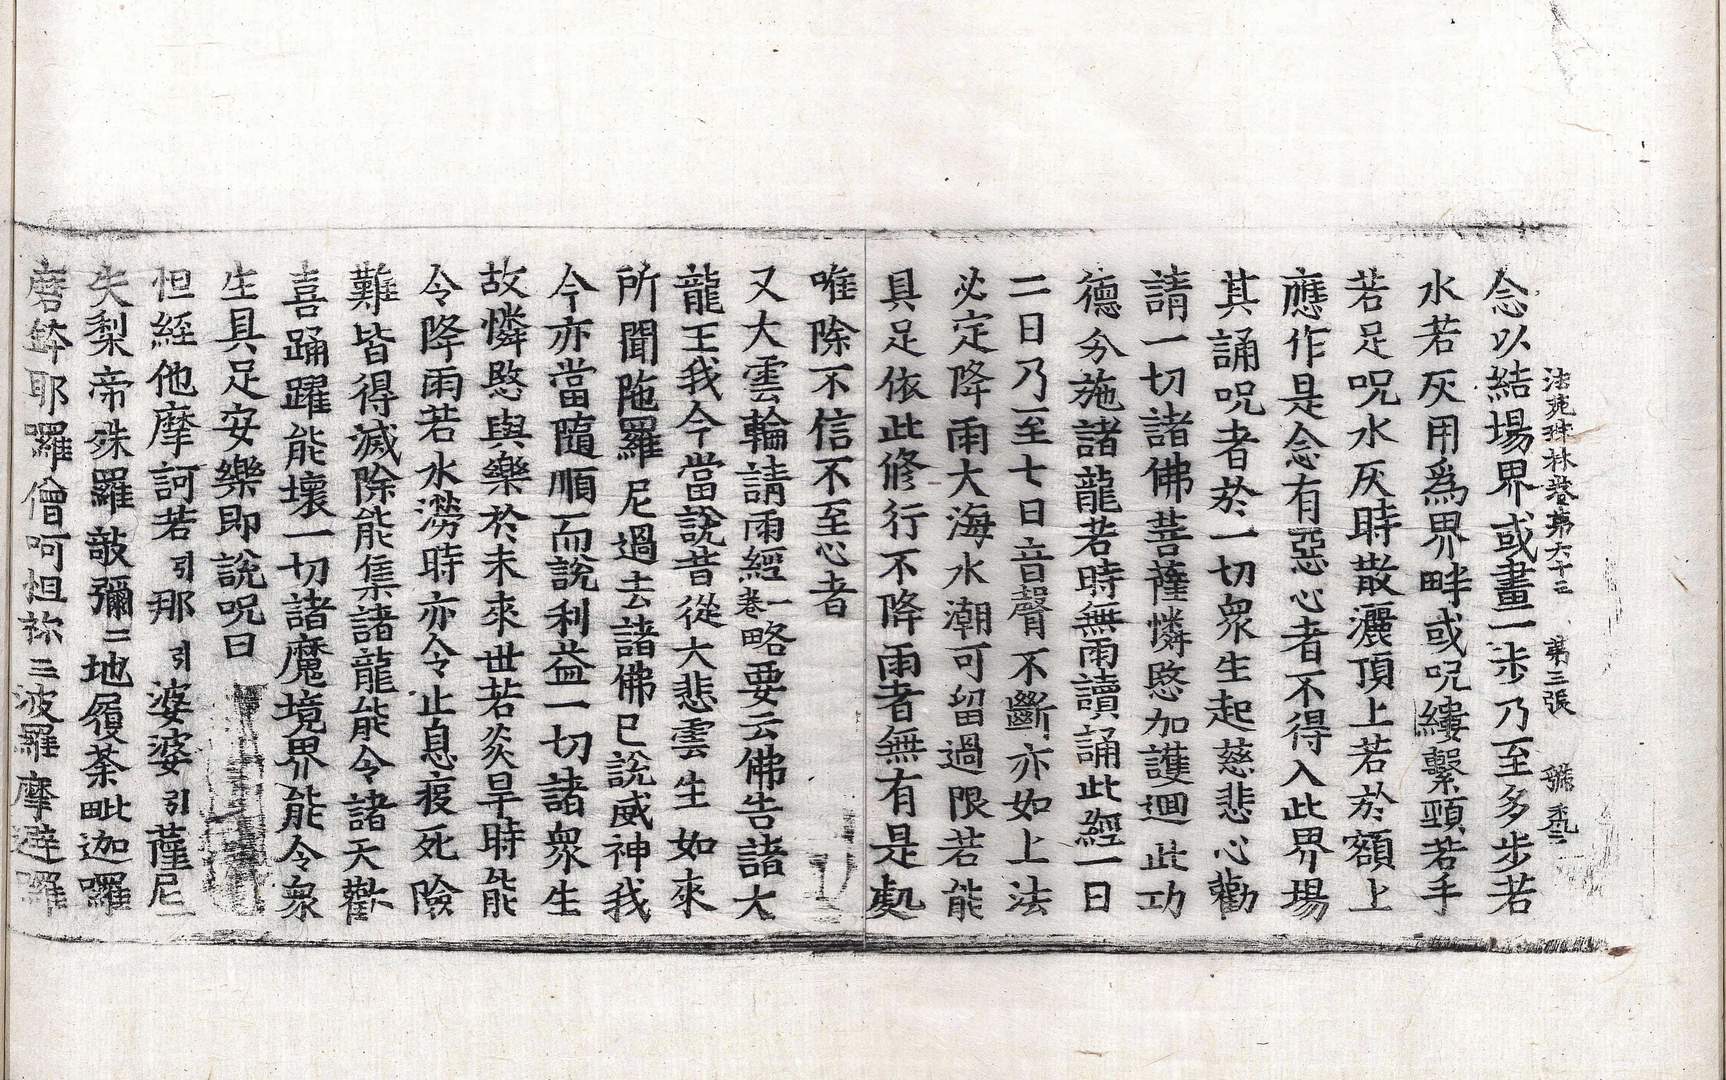 法苑珠林卷第六十三 第三張 號
念以結場界或畫一步乃至多步若
水若灰用爲界畔或呪縷繫頸若手
若足呪水灰時散灑頂上若於額上
應作是念有惡心者不得入此界場
其誦呪者於一切衆生起慈悲心勸
請一切諸佛菩薩憐愍加護迴此功
德分施諸龍若時無雨讀誦此經一日
二日乃至七日音聲不斷亦如上法
必定降雨大海水潮可留過限若能
具足依此修行不降雨者無有是處
唯除不信不至心者
又大雲輪請雨經一卷略要云佛告諸大
龍王我今當說昔從大悲雲生如來
所聞陁羅尼過去諸佛已說威神我
今亦當隨順而說利益一切諸衆生
故憐愍與樂於未來世若炎旱時能
令降雨若水澇時亦令止息疫死險
難皆得滅除能集諸龍能令諸天歡
喜踊躍能壞一切諸魔境界能令衆
生具足安樂即說呪曰
怛經他摩訶若引那引婆婆引薩尼一
失梨帝殊羅敲彌二地履荼毗迦羅
磨鉢耶囉僧呵怛祢三波羅摩避羅